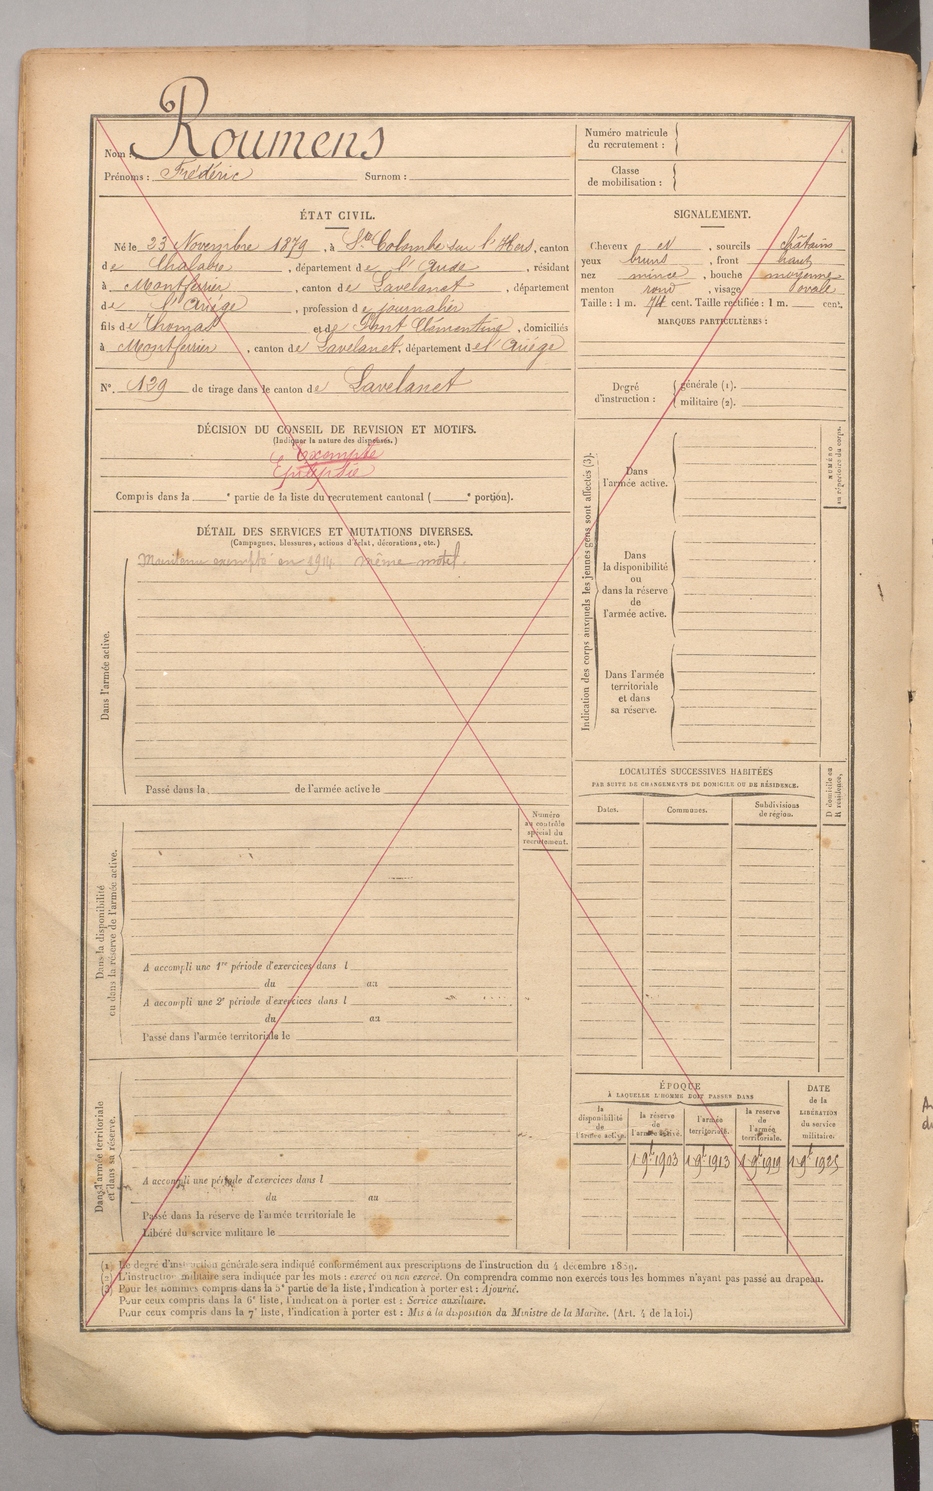 Nom : Roumens
Prénoms : Frédéric Surnom :
ÉTAT CIVIL.
Né le 23 Novembre 1879, à Ste Colombe sur l'Hers, canton
de Chalabre, département de l'Aude, résidant
à Montferrier, canton de Lavelanet, département
de l'Ariége, profession de journalier
fils de Thomas et de Pont Clémentine, domiciliés
à Montferrier, canton de Lavelanet, département de l'Ariége
N°. 139 de tirage dans le canton de Lavelanet
DÉCISION DU CONSEIL DE REVISION ET MOTIFS.
(Indiquer la nature des dispenses.)
exempté
Epilepsie
Compris dans la e partie de la liste du recrutement cantonal ( e portion).
DÉTAIL DES SERVICES ET MUTATIONS DIVERSES.
(Campagnes, blessures, actions d'éclat, décorations, etc.)
Maintenu exempté en 1914 même motif.
Dans l'armée active.
Passé dans la de l'armée active le
Numéro
au contrôle
spécial du
recrutement.
Dans la disponibilité
ou dans la réserve de l'armée active.
A accompli une 1re période d'exercices dans l
du au
A accompli une 2e période d'exercices dans l
du au
Passé dans l'armée territoriale le
Dans l'armée territoriale
et dans sa réserve.
A accompli une période d'exercices dans l
du au
Passé dans la réserve de l'armée territoriale le
Libéré du service militaire le
Numéro matricule
du recrutement :
Classe
de mobilisation :
SIGNALEMENT.
Cheveux et, sourcils châtains
yeux bruns, front haut
nez mince, bouche moyenne
menton rond, visage ovale
Taille : 1 m. 74 cent. Taille rectifiée : 1 m. cent.
MARQUES PARTICULIÈRES :
Degré
d'instruction :
générale (1).
militaire (2).
Indication des corps auxquels les jeunes gens sont affectés (3).
NUMÉRO
au répertoire du corps.
Dans
l'armée active.
Dans
la disponibilité
ou
dans la réserve
de
l'armée active.
Dans l'armée
territoriale
et dans
sa réserve.
LOCALITÉS SUCCESSIVES HABITÉES
PAR SUITE DE CHANGEMENTS DE DOMICILE OU DE RÉSIDENCE.
D domicile ou
R résidence.
Dates. Communes. Subdivisions
de région.
ÉPOQUE
À LAQUELLE L'HOMME DOIT PASSER DANS
la
disponibilité
de
l'armée active.
la réserve
de
l'armée active.
l'armée
territoriale.
la réserve
de
l'armée
territoriale.
DATE
de la
LIBÉRATION
du service
militaire.
1 9bre 1903 1 9bre 1913 1 9bre 1919 1 9bre 1925
(1) Le degré d'instruction générale sera indiqué conformément aux prescriptions de l'instruction du 4 décembre 1889.
(2) L'instruction militaire sera indiquée par les mots : exercé ou non exercé. On comprendra comme non exercés tous les hommes n'ayant pas passé au drapeau.
(3) Pour les hommes compris dans la 5e partie de la liste, l'indication à porter est : Ajourné.
Pour ceux compris dans la 6e liste, l'indication à porter est : Service auxiliaire.
Pour ceux compris dans la 7e liste, l'indication à porter est : Mis à la disposition du Ministre de la Marine. (Art. 4 de la loi.)